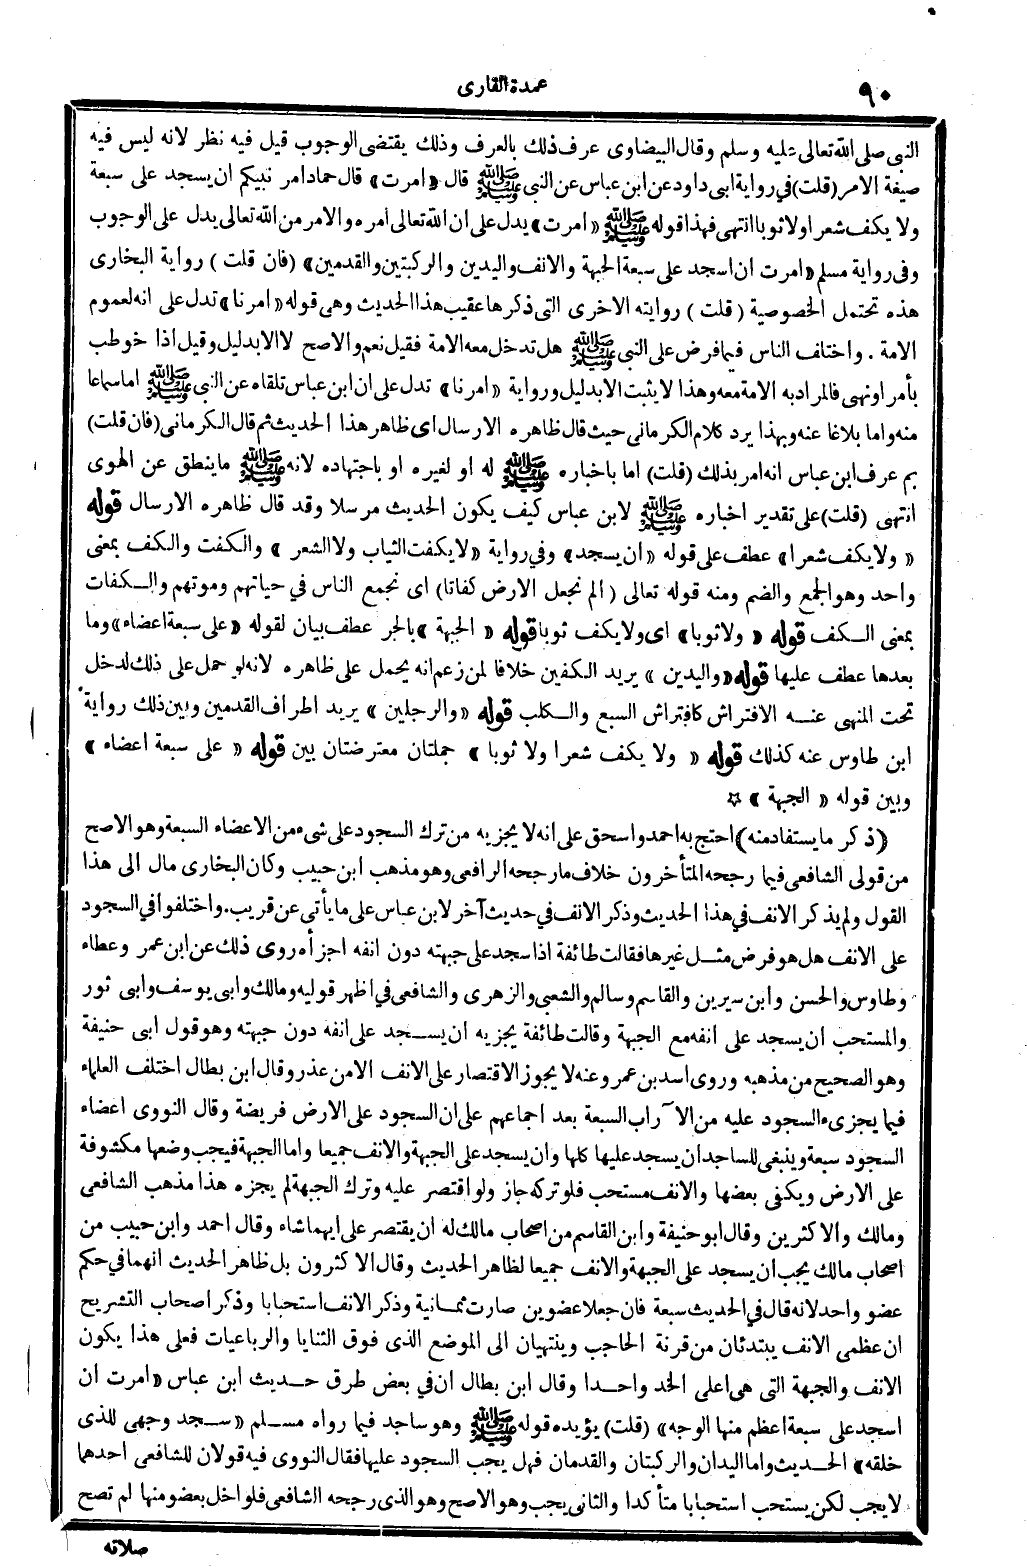 ٩٠
عمدة القارى
النبى صلى الله تعالى عليه وسلم وقال البيضاوى عرف ذلك بالعرف وذلك يقتضى الوجوب قيل فيه نظر لانه ليس فيه
صيغة الامر (قلت) في رواية ابى داود عن ابن عباس عن النبى ﷺ قال «امرت» قال حماد امر نبيكم ان يسجد على سبعة
ولا يكف شعرا ولا ثوبا انتهى فهذا قوله ﷺ «امرت» يدل على ان الله تعالى امره والامر من الله تعالى يدل على الوجوب
وفى رواية مسلم «امرت ان اسجد على سبعة الجبهة والانف واليدين والركبتين والقدمين» (فان قلت) رواية البخارى
هذه تحتمل الخصوصية (قلت) روايته الاخرى التى ذكرها عقيب هذا الحديث وهى قوله «امرنا» تدل على انه لعموم
الامة . واختلف الناس فيما فرض على النبى ﷺ هل تدخل معه الامة فقيل نعم والاصح لا الا بدليل وقيل اذا خوطب
بأمر او نهى فالمراد به الامة معه وهذا لا يثبت الا بدليل ورواية «امرنا» تدل على ان ابن عباس تلقاه عن النبى ﷺ اما سماعا
منه واما بلاغا عنه وبهذا يرد كلام الكرمانى حيث قال ظاهره الارسال اى ظاهر هذا الحديث ثم قال الكرمانى (فان قلت)
بم عرف ابن عباس انه امر بذلك (قلت) اما باخباره ﷺ له او لغيره او باجتهاده لانه ﷺ ما ينطق عن الهوى
انتهى (قلت) على تقدير اخباره ﷺ لابن عباس كيف يكون الحديث مرسلا وقد قال ظاهره الارسال قوله
«ولا يكف شعرا» عطف على قوله «ان يسجد» وفي رواية «لا يكفت الثياب ولا الشعر» والكفت والكف بمعنى
واحد وهو الجمع والضم ومنه قوله تعالى (الم نجعل الارض كفاتا) اى نجمع الناس في حياتهم وموتهم والكفات
بمعنى الكف قوله «ولا ثوبا» اى ولا يكف ثوبا قوله «الجبهة» بالجر عطف بيان لقوله «على سبعة اعضاء» وما
بعدها عطف عليها قوله «واليدين» يريد الكفين خلافا لمن زعم انه يحمل على ظاهره لانه لو حمل على ذلك لدخل
تحت المنهى عنه الافتراش كافتراش السبع والكلب قوله «والرجلين» يريد اطراف القدمين وبين ذلك رواية
ابن طاوس عنه كذلك قوله «ولا يكف شعرا ولا ثوبا» جملتان معترضتان بين قوله «على سبعة اعضاء»
وبين قوله «الجبهة» ☆
(ذكر ما يستفاد منه) احتج به احمد واسحق على انه لا يجزيه من ترك السجود على شىء من الاعضاء السبعة وهو الاصح
من قولى الشافعى فيما رجحه المتأخرون خلاف ما رجحه الرافعى وهو مذهب ابن حبيب وكان البخارى مال الى هذا
القول ولم يذكر الانف في هذا الحديث وذكر الانف في حديث آخر لابن عباس على ما يأتى عن قريب. واختلفوا في السجود
على الانف هل هو فرض مثل غيرها فقالت طائفة اذا سجد على جبهته دون انفه اجزأه روى ذلك عن ابن عمر وعطاء
وطاوس والحسن وابن سيرين والقاسم وسالم والشعبى والزهرى والشافعى في اظهر قوليه ومالك وابى يوسف وابى ثور
والمستحب ان يسجد على انفه مع الجبهة وقالت طائفة يجزيه ان يسجد على انفه دون جبهته وهو قول ابى حنيفة
وهو الصحيح من مذهبه وروى اسد بن عمرو عنه لا يجوز الاقتصار على الانف الا من عذر وقال ابن بطال اختلف العلماء
فيما يجزىء السجود عليه من الآراب السبعة بعد اجماعهم على ان السجود على الارض فريضة وقال النووى اعضاء
السجود سبعة وينبغى للساجد ان يسجد عليها كلها وان يسجد على الجبهة والانف جميعا واما الجبهة فيجب وضعها مكشوفة
على الارض ويكفى بعضها والانف مستحب فلو تركه جاز ولو اقتصر عليه وترك الجبهة لم يجزه هذا مذهب الشافعى
ومالك والاكثرين وقال ابو حنيفة وابن القاسم من اصحاب مالك له ان يقتصر على ايهما شاء وقال احمد وابن حبيب من
اصحاب مالك يجب ان يسجد على الجبهة والانف جميعا لظاهر الحديث وقال الاكثرون بل ظاهر الحديث انهما في حكم
عضو واحد لانه قال في الحديث سبعة فان جعلا عضوين صارت ثمانية وذكر الانف استحبابا وذكر اصحاب التشريح
ان عظمى الانف يبتدئان من قرنة الحاجب وينتهيان الى الموضع الذى فوق الثنايا والرباعيات فعلى هذا يكون
الانف والجبهة التى هى اعلى الخد واحدا وقال ابن بطال ان في بعض طرق حديث ابن عباس «امرت ان
اسجد على سبعة اعظم منها الوجه» (قلت) يؤيده قوله ﷺ وهو ساجد فيما رواه مسلم «سجد وجهى للذى
خلقه» الحديث واما اليدان والركبتان والقدمان فهل يجب السجود عليها فقال النووى فيه قولان للشافعى احدهما
لا يجب لكن يستحب استحبابا متأكدا والثانى يجب وهو الاصح وهو الذى رجحه الشافعى فلو اخل بعضو منها لم تصح
صلاته